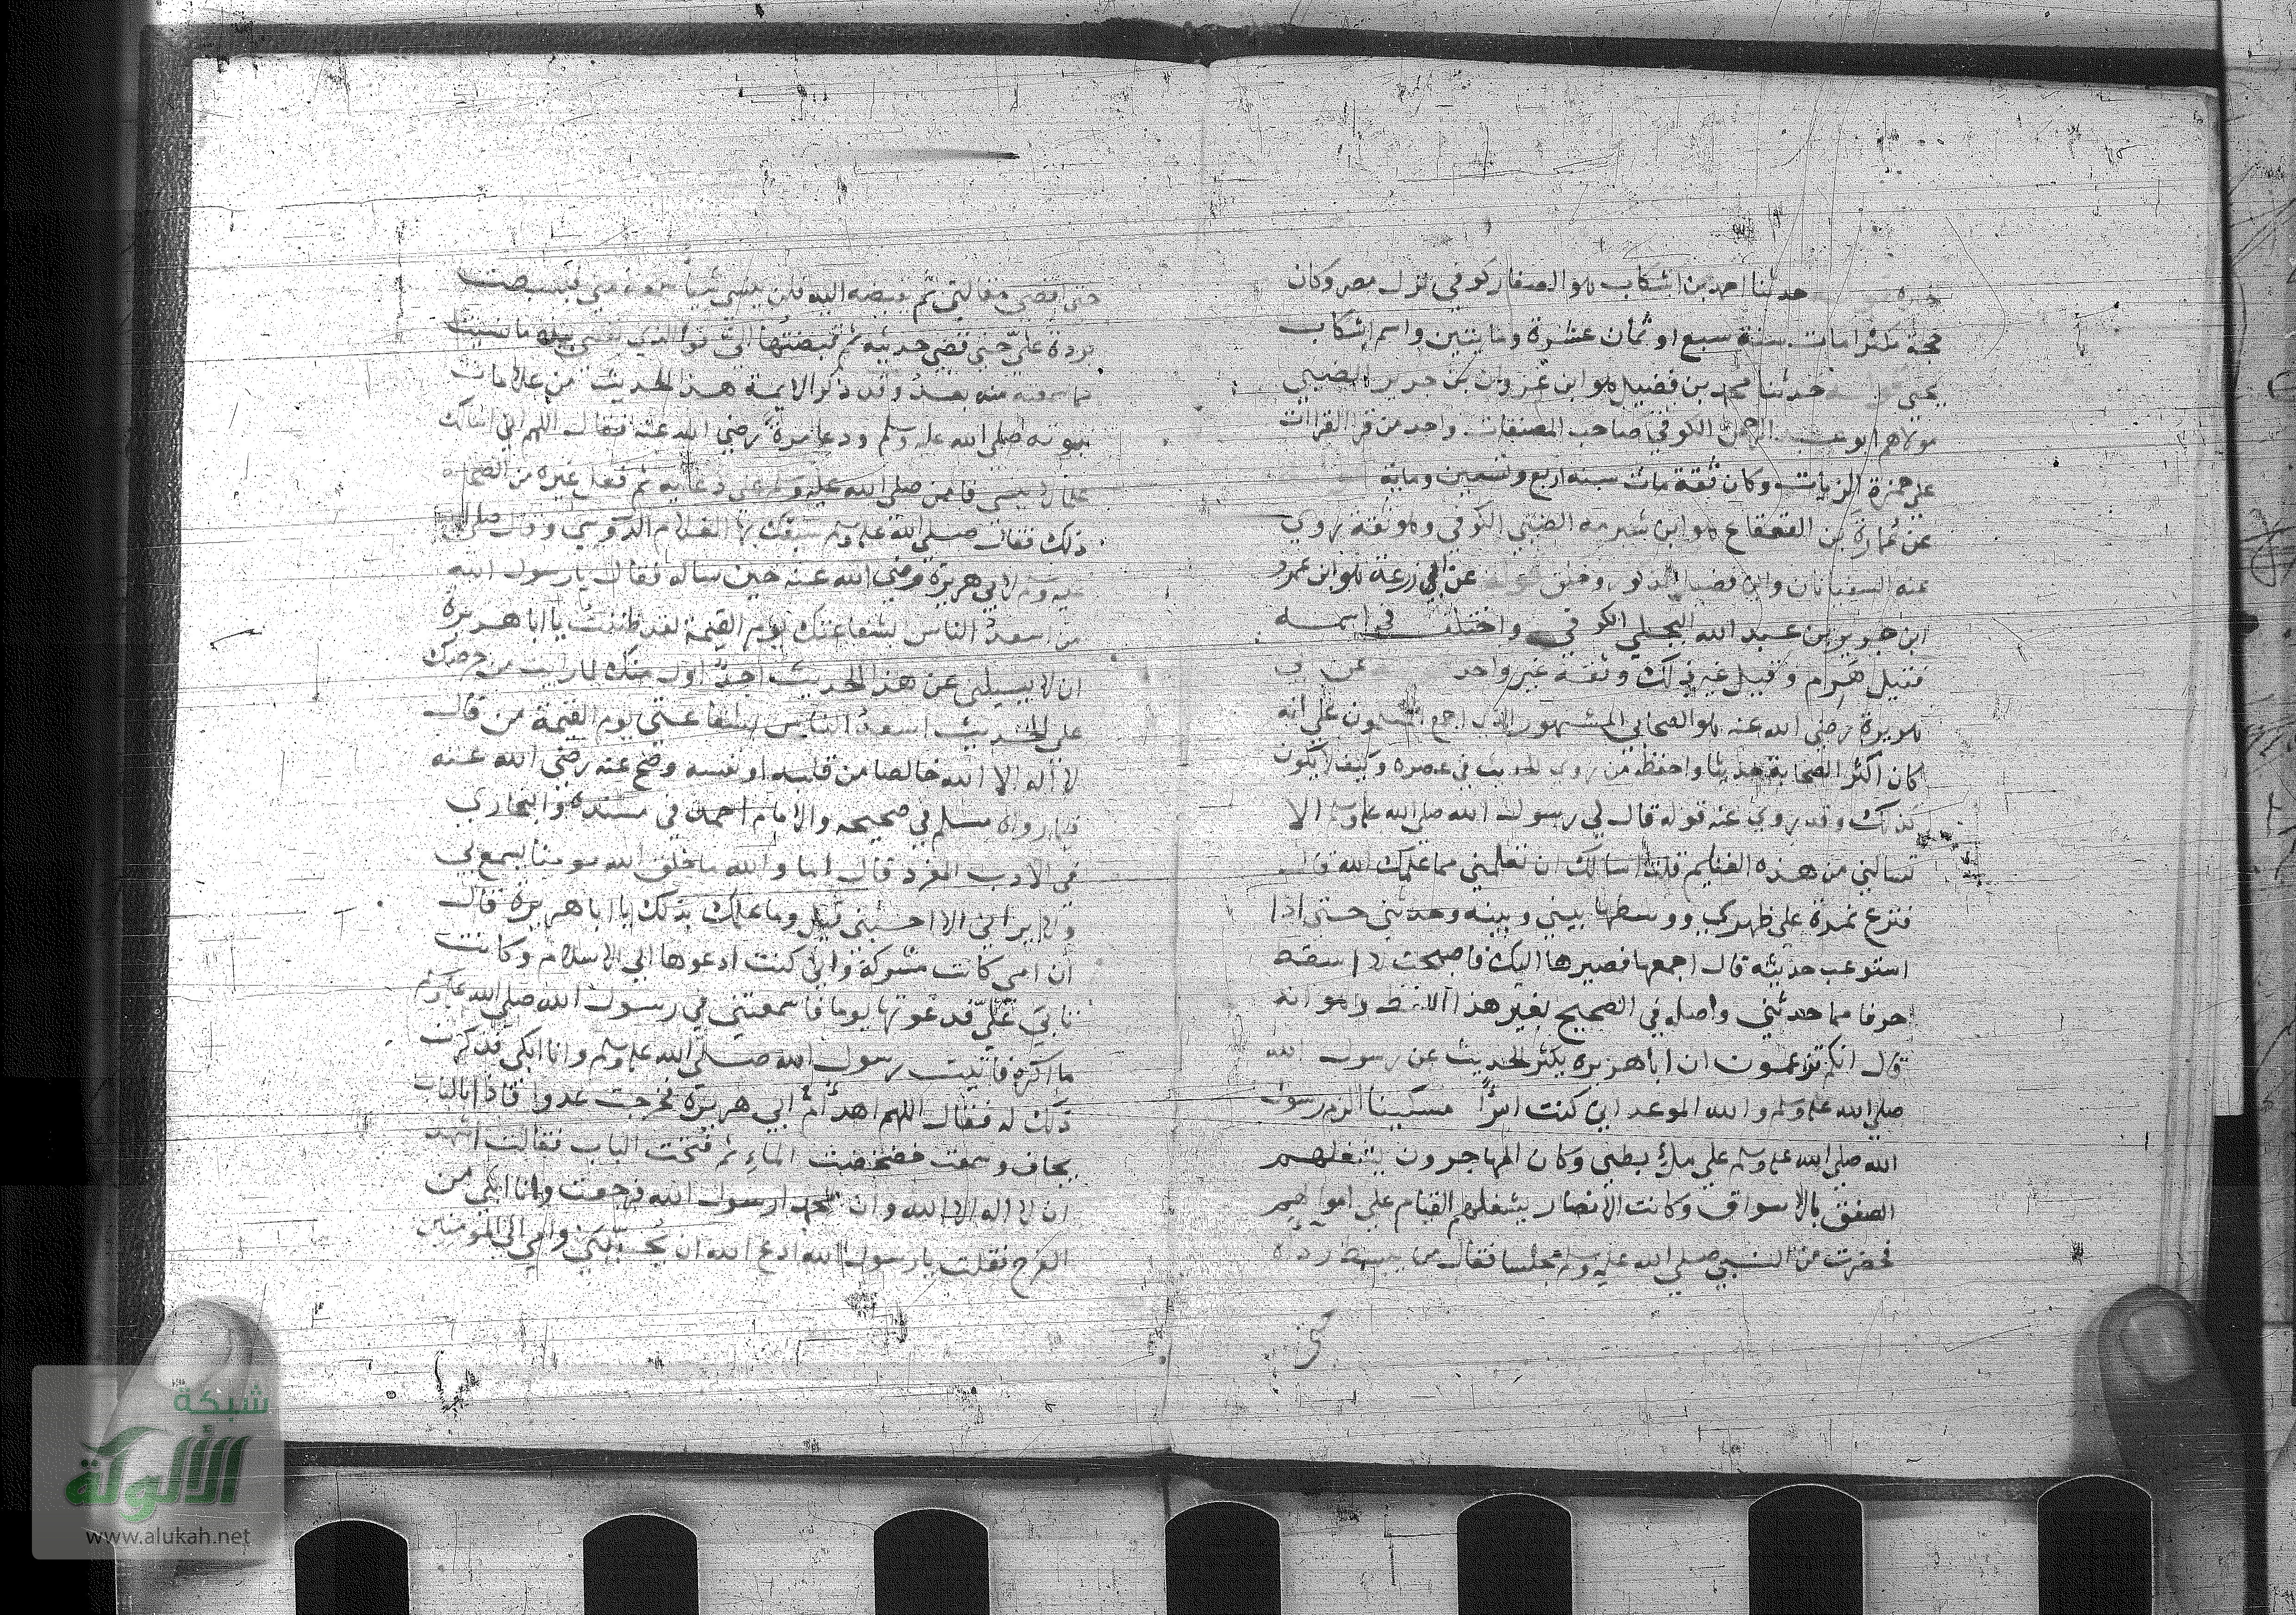 حدثنا احمد بن اشكاب هو الصفار كوفي نزل مصر وكان
حجة مكثرا مات سنة سبع او ثمان عشرة ومايتين واسم اشكاب
حدثنا محمد بن فضيل هو ابن غزوان بن جرير الضبي
مولاهم ابو عبد الرحمن الكوفي صاحب المصنفات واحد من قرا القراات
علي حمزة الزيات وكان ثقة مات سنة اربع وتسعين وماية
عن عمارة بن القعقاع هو ابن شبرمه الضبي الكوفي وهو ثقة روي
عنه السفيانان وابن فضيل وخلق عن ابي زرعة هو ابن عمرو
ابن جرير بن عبد الله البجلي الكوفي واختلف في اسمه
فقيل هرم وقيل غير ذلك وثقه غير واحد عن ابي
هريرة رضي الله عنه هو الصحابي المشهور اجمع علي انه
كان اكثر الصحابة حديثا واحفظ من روي الحديث في عصره وكيف لا يكون
كذلك وقد روي عنه قوله قال لي رسول الله صلى الله عليه وسلم الا
تسالني من هذه الغنايم قلت اسالك ان تعلمني مما علمك الله قال
فنزع نمرة علي ظهري ووسطها بيني وبينه وحدثني حتى اذا
استوعب حديثه قال اجمعها فصيرها اليك فاصبحت لا اسقط
حرفا مما حدثني واصله في الصحيح بغير هذا اللفظ وهو انه
قال انكم تزعمون ان ابا هريرة يكثر الحديث عن رسول الله
صلى الله عليه وسلم والله الموعد اني كنت امرأ مسكينا الزم رسول
الله صلى الله عليه وسلم علي ملإ بطني وكان المهاجرون يشغلهم
الصفق بالاسواق وكانت الانصار يشغلهم القيام علي اموالهم
فحضرت من النبي صلى الله عليه وسلم مجلسا فقال من يبسط رداه
حتى
حتى اقضي مقالتي ثم يقبضه اليه فلن ينسي شيا سمعه مني فبسطت
بردة علي حتى قضي حديثه ثم قبضتها الي فوالذي نفسي بيده ما نسيت
مما سمعته منه بعد وقد ذكر الايمة هذا الحديث من علامات
نبوته صلى الله عليه وسلم ودعا مرة رضي الله عنه فقال اللهم اني اسالك
علما لا ينسى فامن صلى الله عليه وسلم علي دعايه ثم فعل غيره من الصحابة
ذلك فقال صلى الله عليه وسلم سبقك بها الغلام الدوسي وقال صلى الله
عليه وسلم لابي هريرة رضي الله عنه حين ساله فقال يا رسول الله
من اسعد الناس بشفاعتك يوم القيمة لقد ظننت يا ابا هريرة
ان لا يسيلني عن هذا الحديث احد اول منك لما رايت من حرصك
علي الحديث اسعد الناس بشفاعتي يوم القيمة من قال
لا اله الا الله خالصا من قلبه او نفسه وصح عنه رضي الله عنه
فيما رواه مسلم في صحيحه والامام احمد في مسنده والبخاري
في الادب المفرد قال اما والله ما خلق الله مومنا يسمع بي
ولا يراني الا احبني قيل وما علمك بذلك يا ابا هريرة قال
ان امي كانت مشركة واني كنت ادعوها الي الاسلام وكانت
تابي علي فدعوتها يوما فاسمعتني في رسول الله صلى الله عليه وسلم
ما اكره فاتيت رسول الله صلى الله عليه وسلم وانا ابكي فذكرت
ذلك له فقال اللهم اهد أم ابي هريرة فخرجت عدوا فاذا بالباب
مجاف وسمعت خضخضت الماء ثم فتحت الباب فقالت اشهد
ان لا اله الا الله وان محمدا رسول الله فرجعت وانا ابكي من
الفرح فقلت يا رسول الله ادع الله ان يحببني وامي الي المومنين
شبكة
الألوكة
www.alukah.net